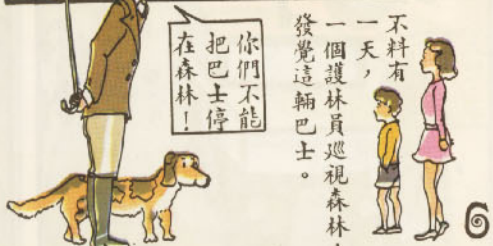 不料有
一天，
一個護林員巡視森林，
發覺這輛巴士。
你們不能
把巴士停
在森林！
6